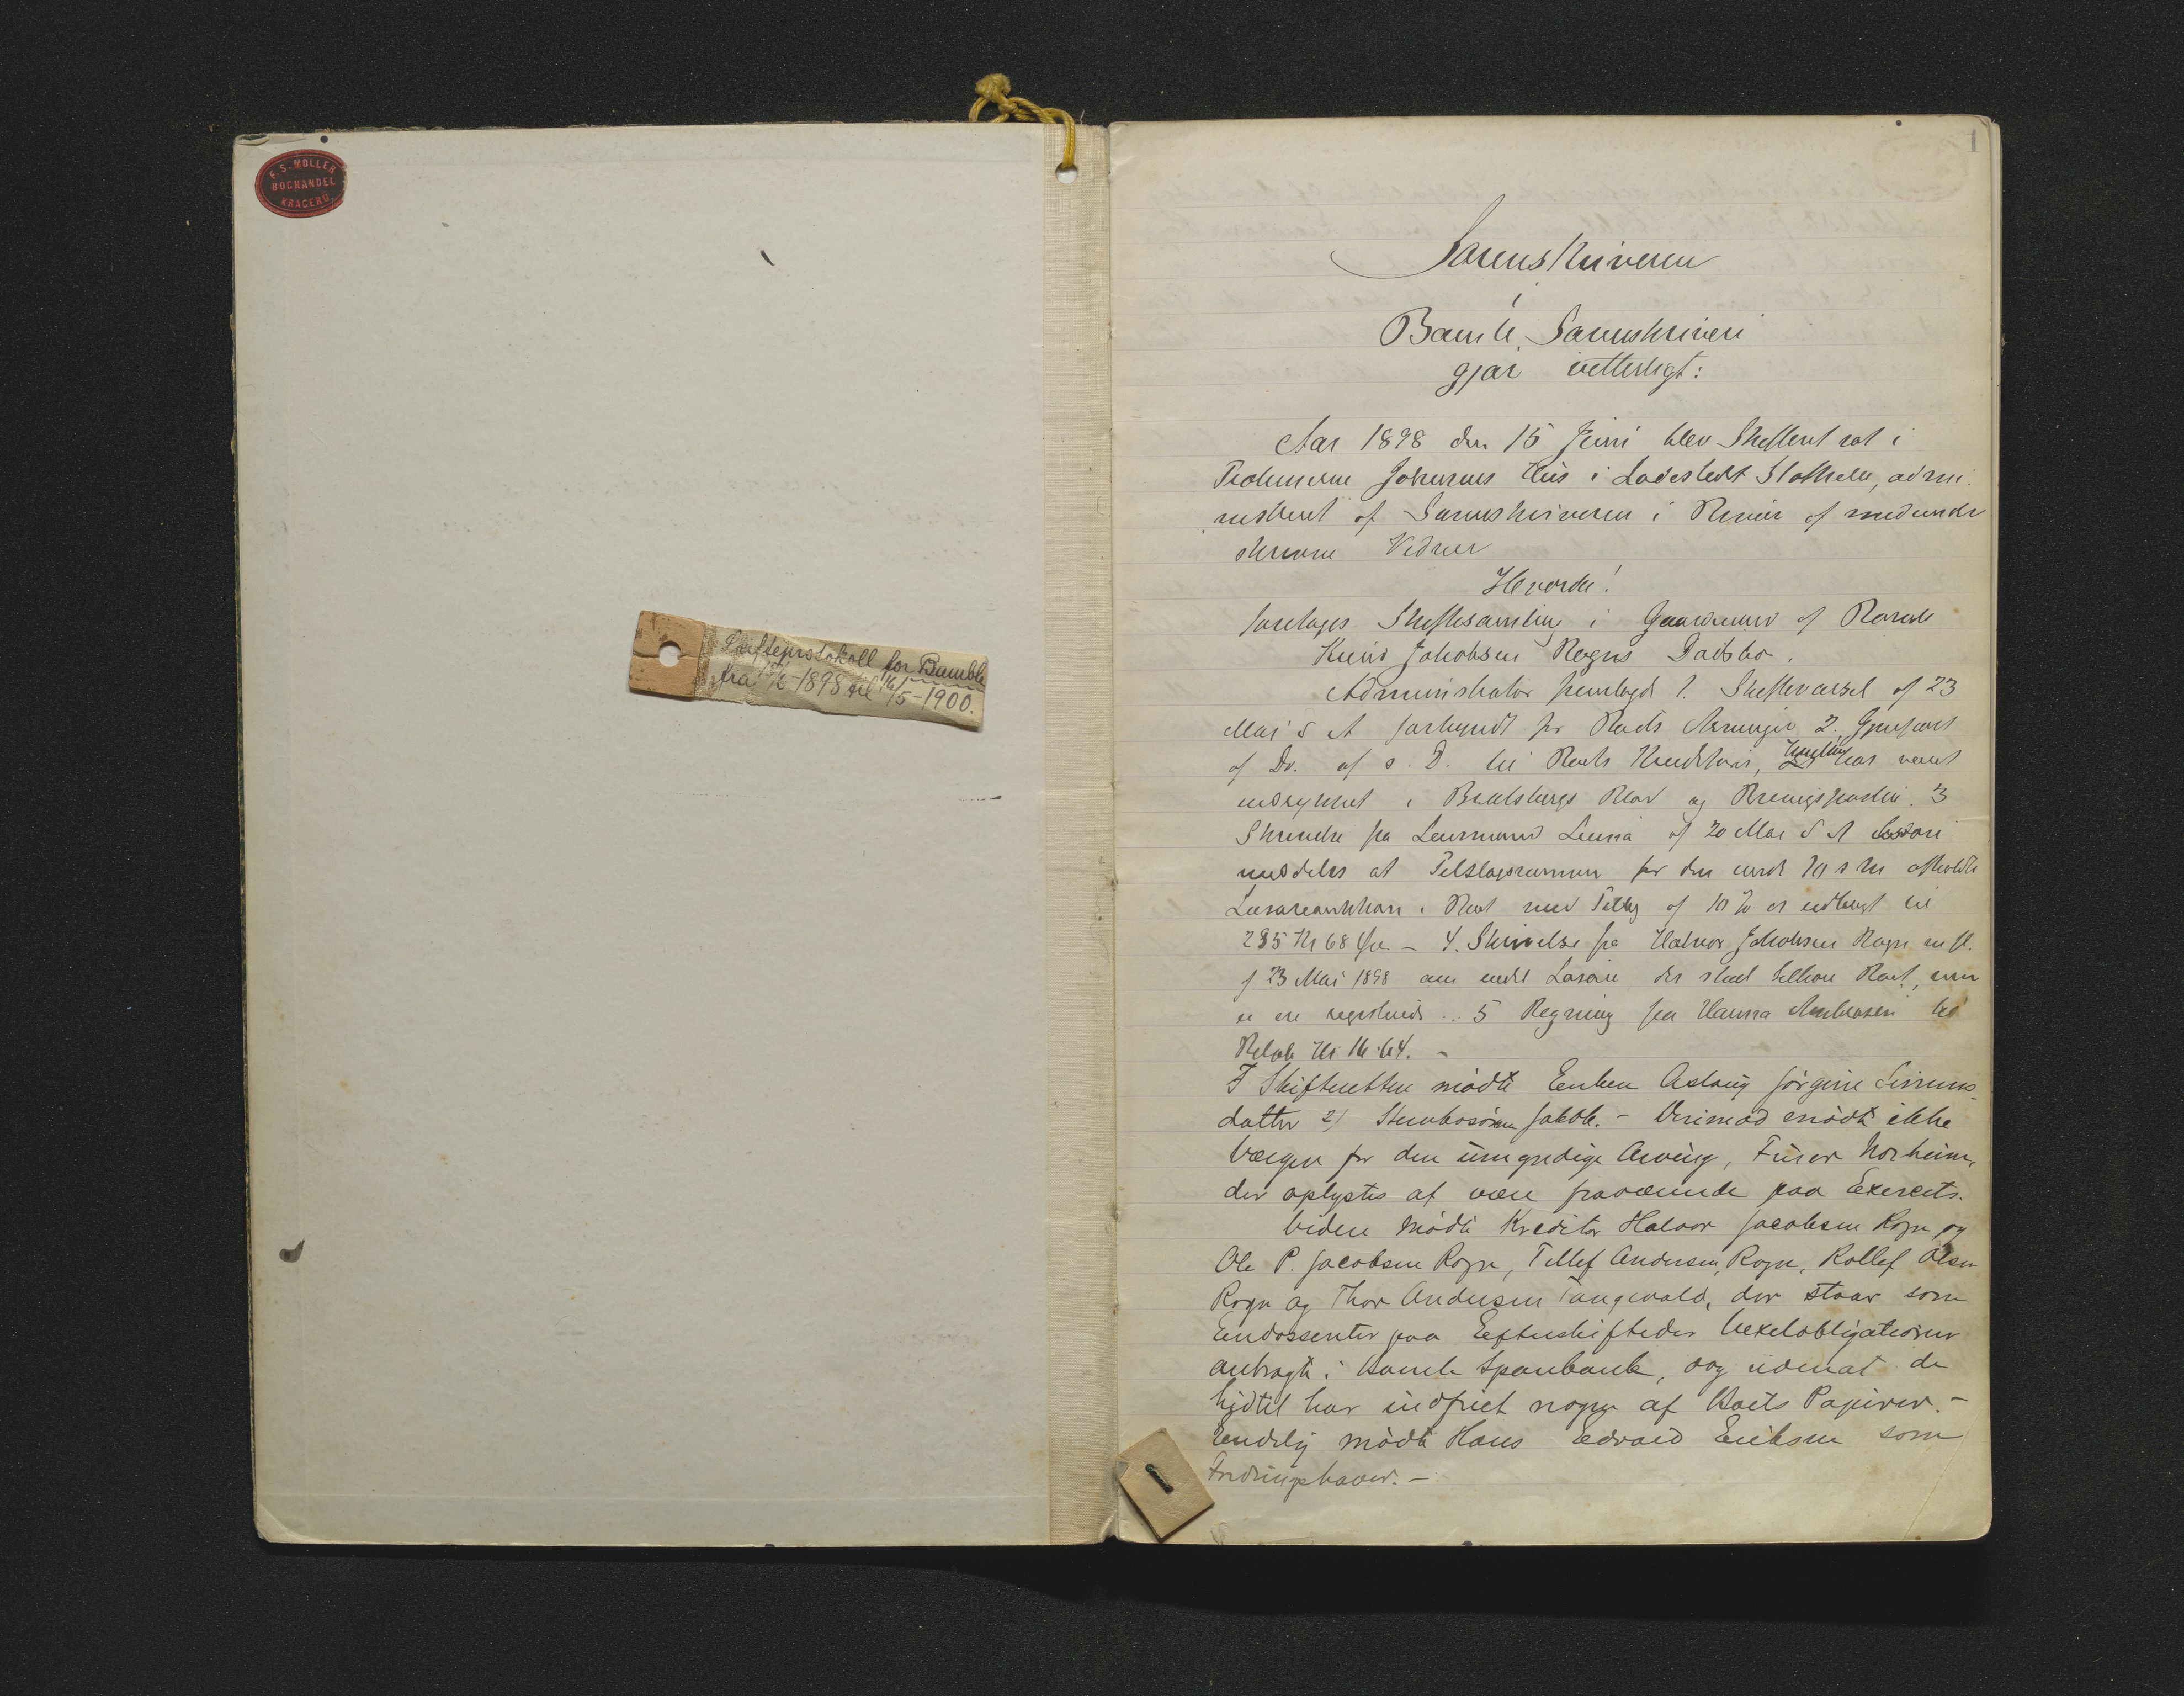 F. S. MØLLER
BOGHANDEL
KRAGERØ
Skifteprotokoll for Bamble
fra 15/6-1898 til 16/5-1900.
1
Sorenskriveren
i
Bamle Sorenskriveri
gjør vitterligt:
Aar 1898 den 15 Juni blev Skifteret sat i
Johnsens Hus i Ladestedet Stathelle, admi
nistreret af Sorenskriveren i Nærvær af medunder
skrevne Vidner
Hvorda!
foretages Skiftesamling i Gaardmand
Knud Jakobsen Rogns Dødsbo.
Administrator fremlagde 1. Skiftevarsel af 23
Mai d A forkyndt for Boets Arvinger 2. Gjenpart
af Do. af s. D. til Boets Kreditorer, har været
indrykket i Bratsbergs Blad og . 3
Skrivelse fra Lensmand af 20 Mai d A hvori
meddeles at Tilslagssummen for den under 10 s M afholdte
Løsøreauktion i Boet med Tillæg af 10 % er udbragt til
285 Kr 68 Øre - 4. Skrivelse fra Halvor Jakobsen Rogn m fl.
af 23 Mai 1898 om endel Løsøre der skal tilhøre Boet, men
ei ere registrerede .. 5 Regning fra Hanna
Beløb Kr 16.64. -
I Skifteretten mødte Enken Aslaug Jørgine Simons
datter 2) Stervbosønnen Jakob. - Derimod mødte ikke
Værgen for den umyndige Arving, Furer Norheim,
der oplystes at være fraværende paa Exercits.
Videre mødte Kreditor Halvor Jacobsen Rogn og
Ole P. Jacobsen Rogn, Tellef Andersen Rogn, Rollef Olsen
Rogn og Thor Andersen Tangvald, der staar som
Endossenter paa Eftuskiftedes Vexelobligationer
anbragt i Bamle Sparebank, dog uden at de
hidtil har indfriet nogen af Boets Papirer. -
Endelig mødte Hans Edvard Eriksen som
Fordringshaver. -